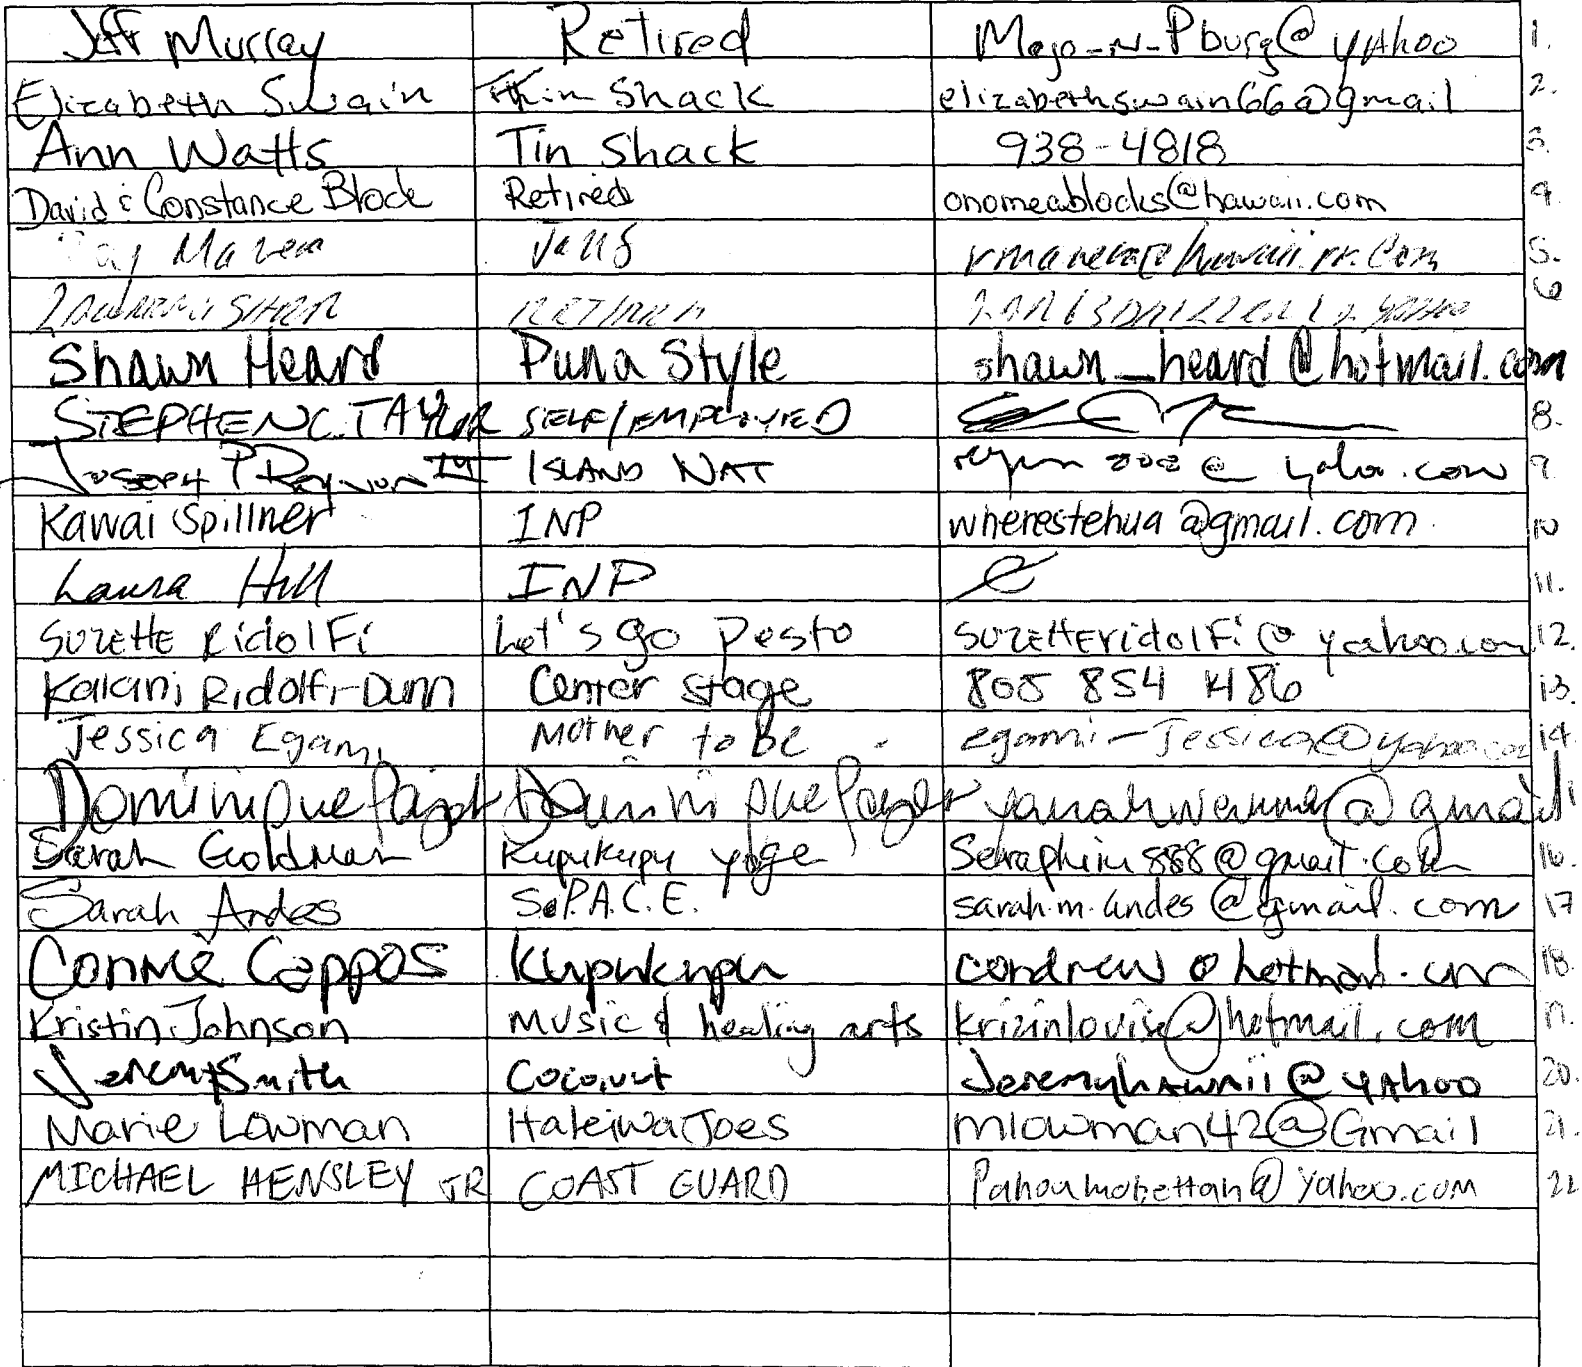 Jeff Murray Retired Mojo-N-Pburg@yAhoo 1.
Elizabeth Swain Tin Shack elizabethswain66@gmail 2.
Ann Watts Tin Shack 938-4818 3.
David & Constance Block Retired onomeablocks@hawaii.com 4.
5.
RETIRED 6
Shawn Heard Puna Style shawn_heard@hotmail.com
STEPHEN C. TAYLOR SELF/EMPLOYED 8.
JOSEPH P ISLAND NAT @ yahoo.com 9.
Kawai Spillner INP wherestehua@gmail.com 10
Laura Hill INP 11.
SUZETTE RidolFi Let's go pesto SUZETTEridolFi@yahoo.com 12.
Kalani Ridolfi-Dunn Center stage 805 854 4486 13.
Jessica Egami Mother to be egami-Jessica@yahoo.com 14.
Dominique @gmail
Sarah Goldman Kupukupu yoga Seraphim888@gmail.com 16.
Sarah Andes S.P.A.C.E. sarah.m.andes@gmail.com 17
Connie Cappos Kupukupu condrew@hotmail.com 18.
Kristin Johnson Music & healing arts krizinlouise@hotmail.com
Jeremy Smith Coconut JeremyhAwaii@yAhoo 20.
Marie Lowman Haleiwa Joes mlowman42@Gmail 21.
MICHAEL HENSLEY JR COAST GUARD Pahoamobettah@yahoo.com 22